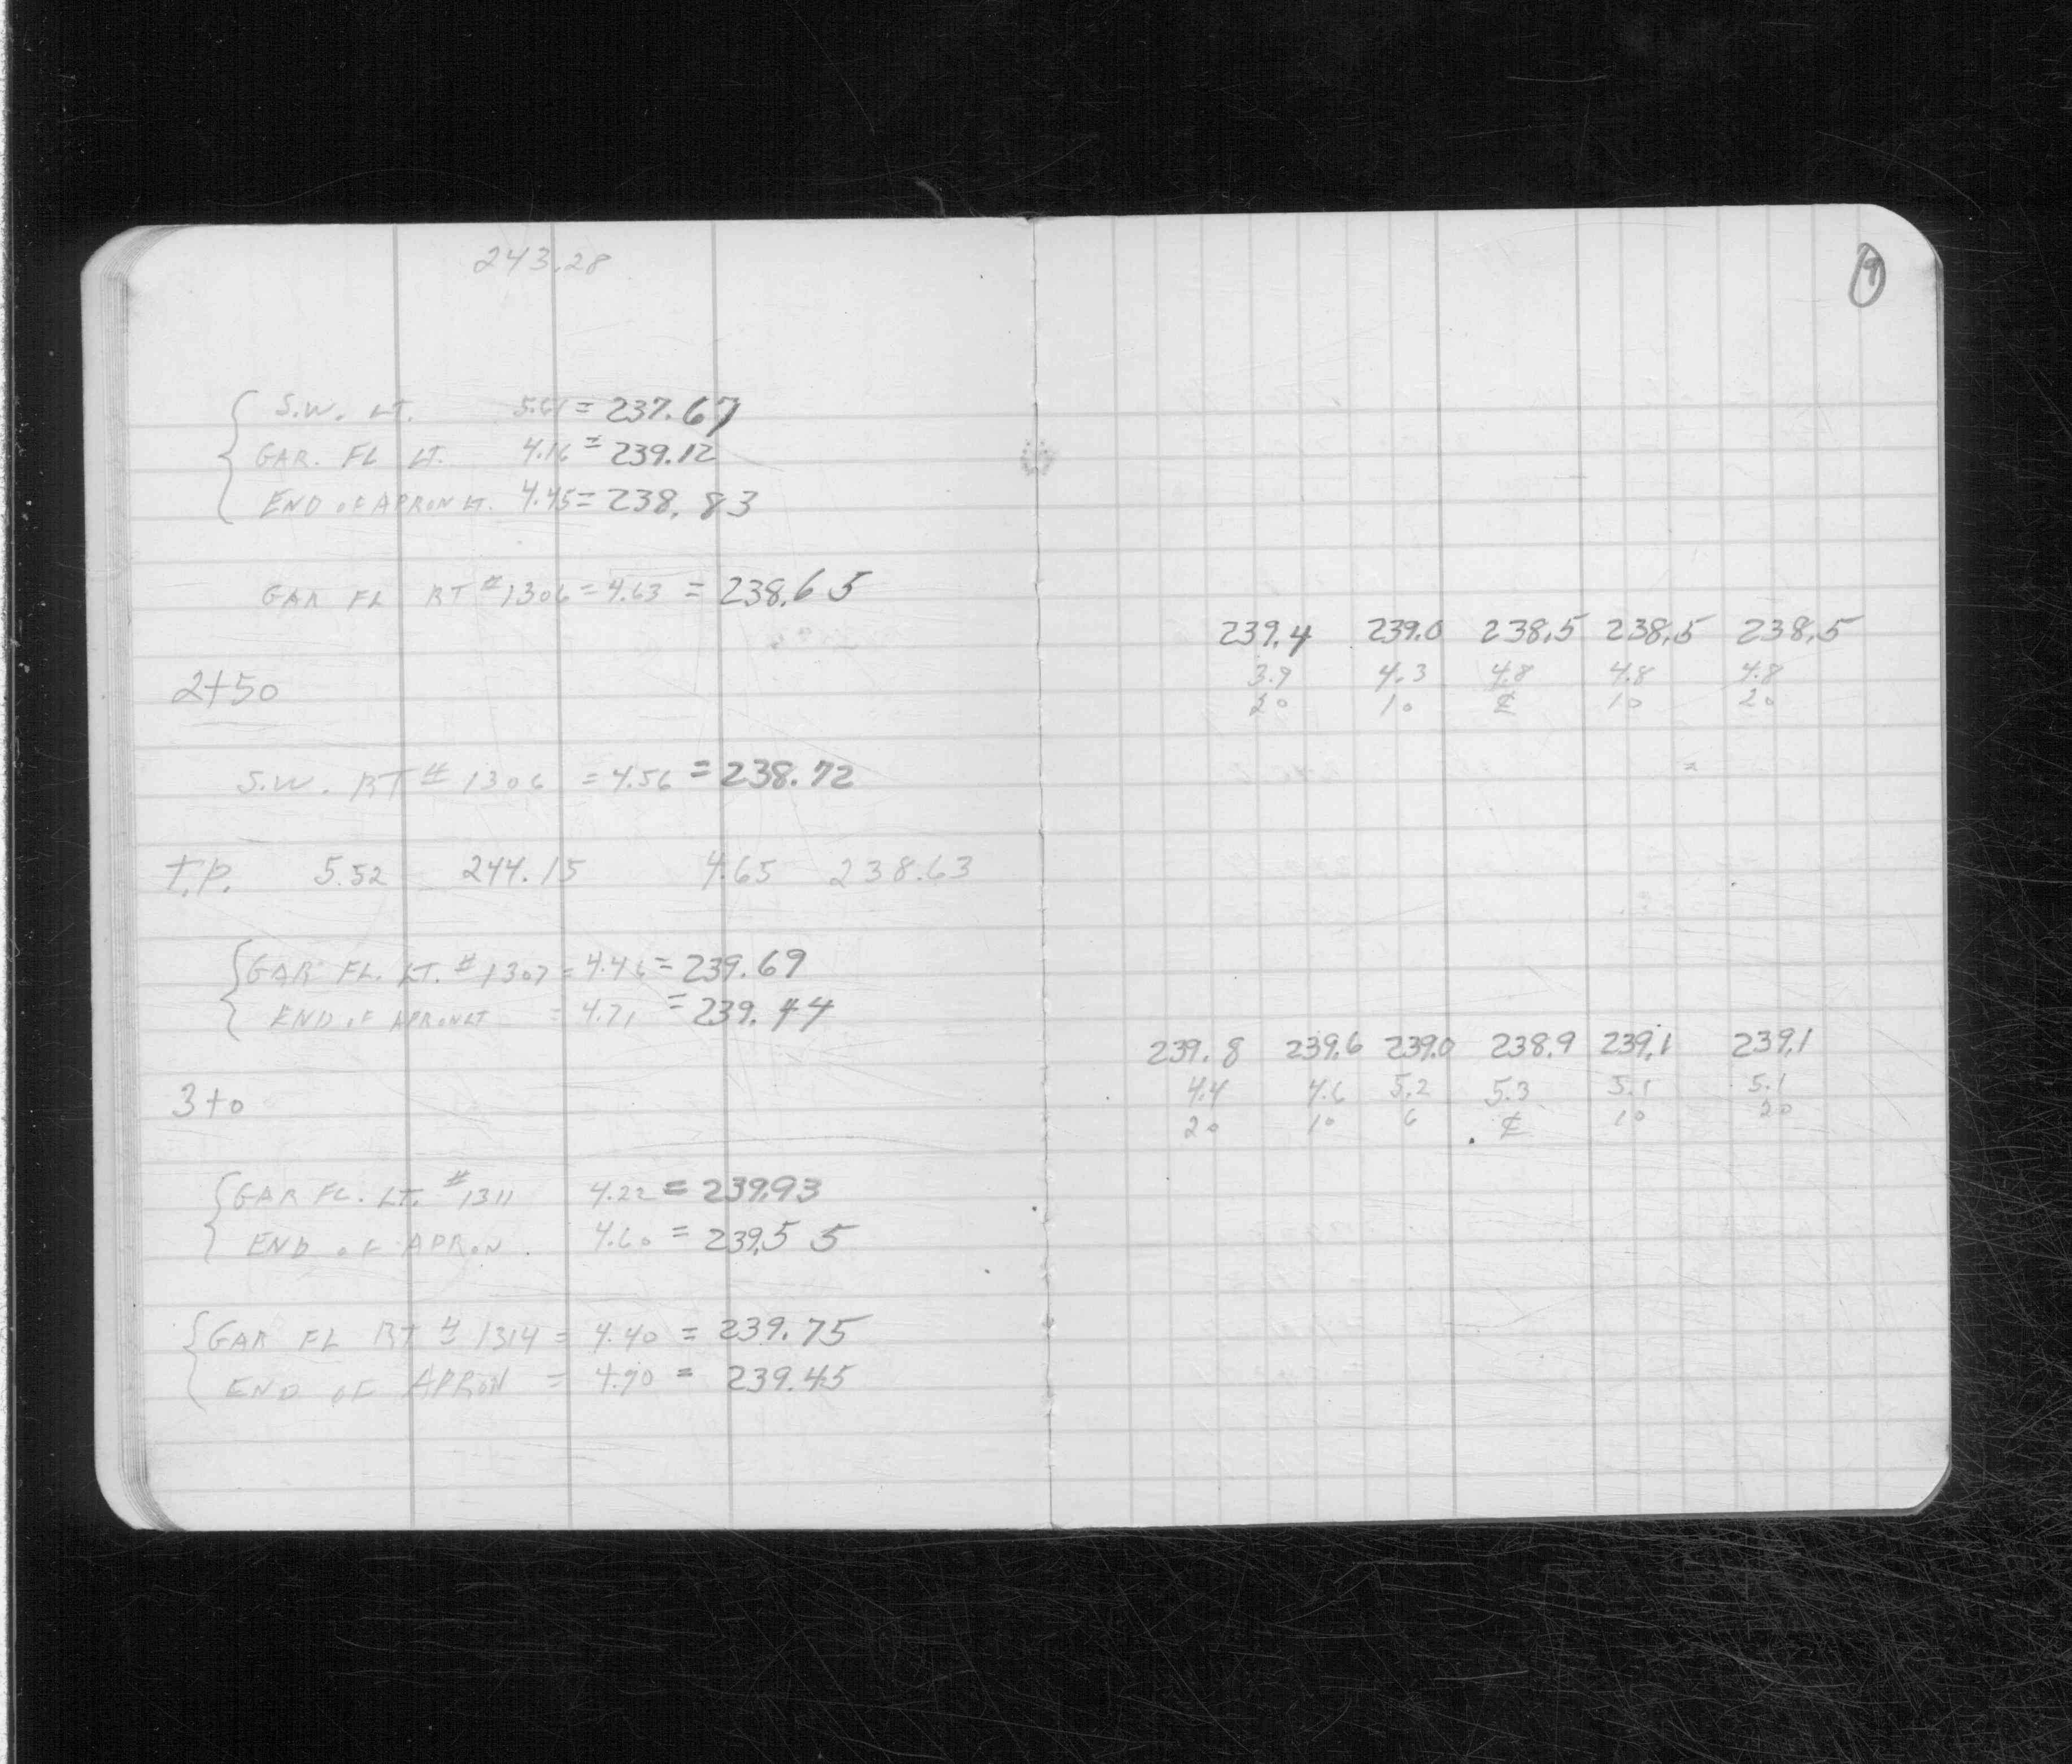 243.28
S.W. LT. 5.61 = 237.67
GAR. FL LT. 4.16 = 239.12
END OF APRON LT. 4.45 = 238.83
GAR FL RT #1306 = 4.63 = 238.65
2+50
S.W. RT # 1306 = 4.56 = 238.72
T.P. 5.52 244.15 4.65 238.63
GAR FL. LT. #1307 = 4.46 = 239.69
END OF APRON LT = 4.71 = 239.44
3+0
GAR FL. LT. #1311 4.22 = 239.93
END OF APRON 4.60 = 239.55
GAR FL RT # 1314 = 4.40 = 239.75
END OF APRON = 4.70 = 239.45
239.4 239.0 238.5 238.5 238.5
3.9 4.3 4.8 4.8 4.8
20 10 ℄ 10 20
=
239.8 239.6 239.0 238.9 239.1 239.1
4.4 4.6 5.2 5.3 5.1 5.1
20 10 6 ℄ 10 20